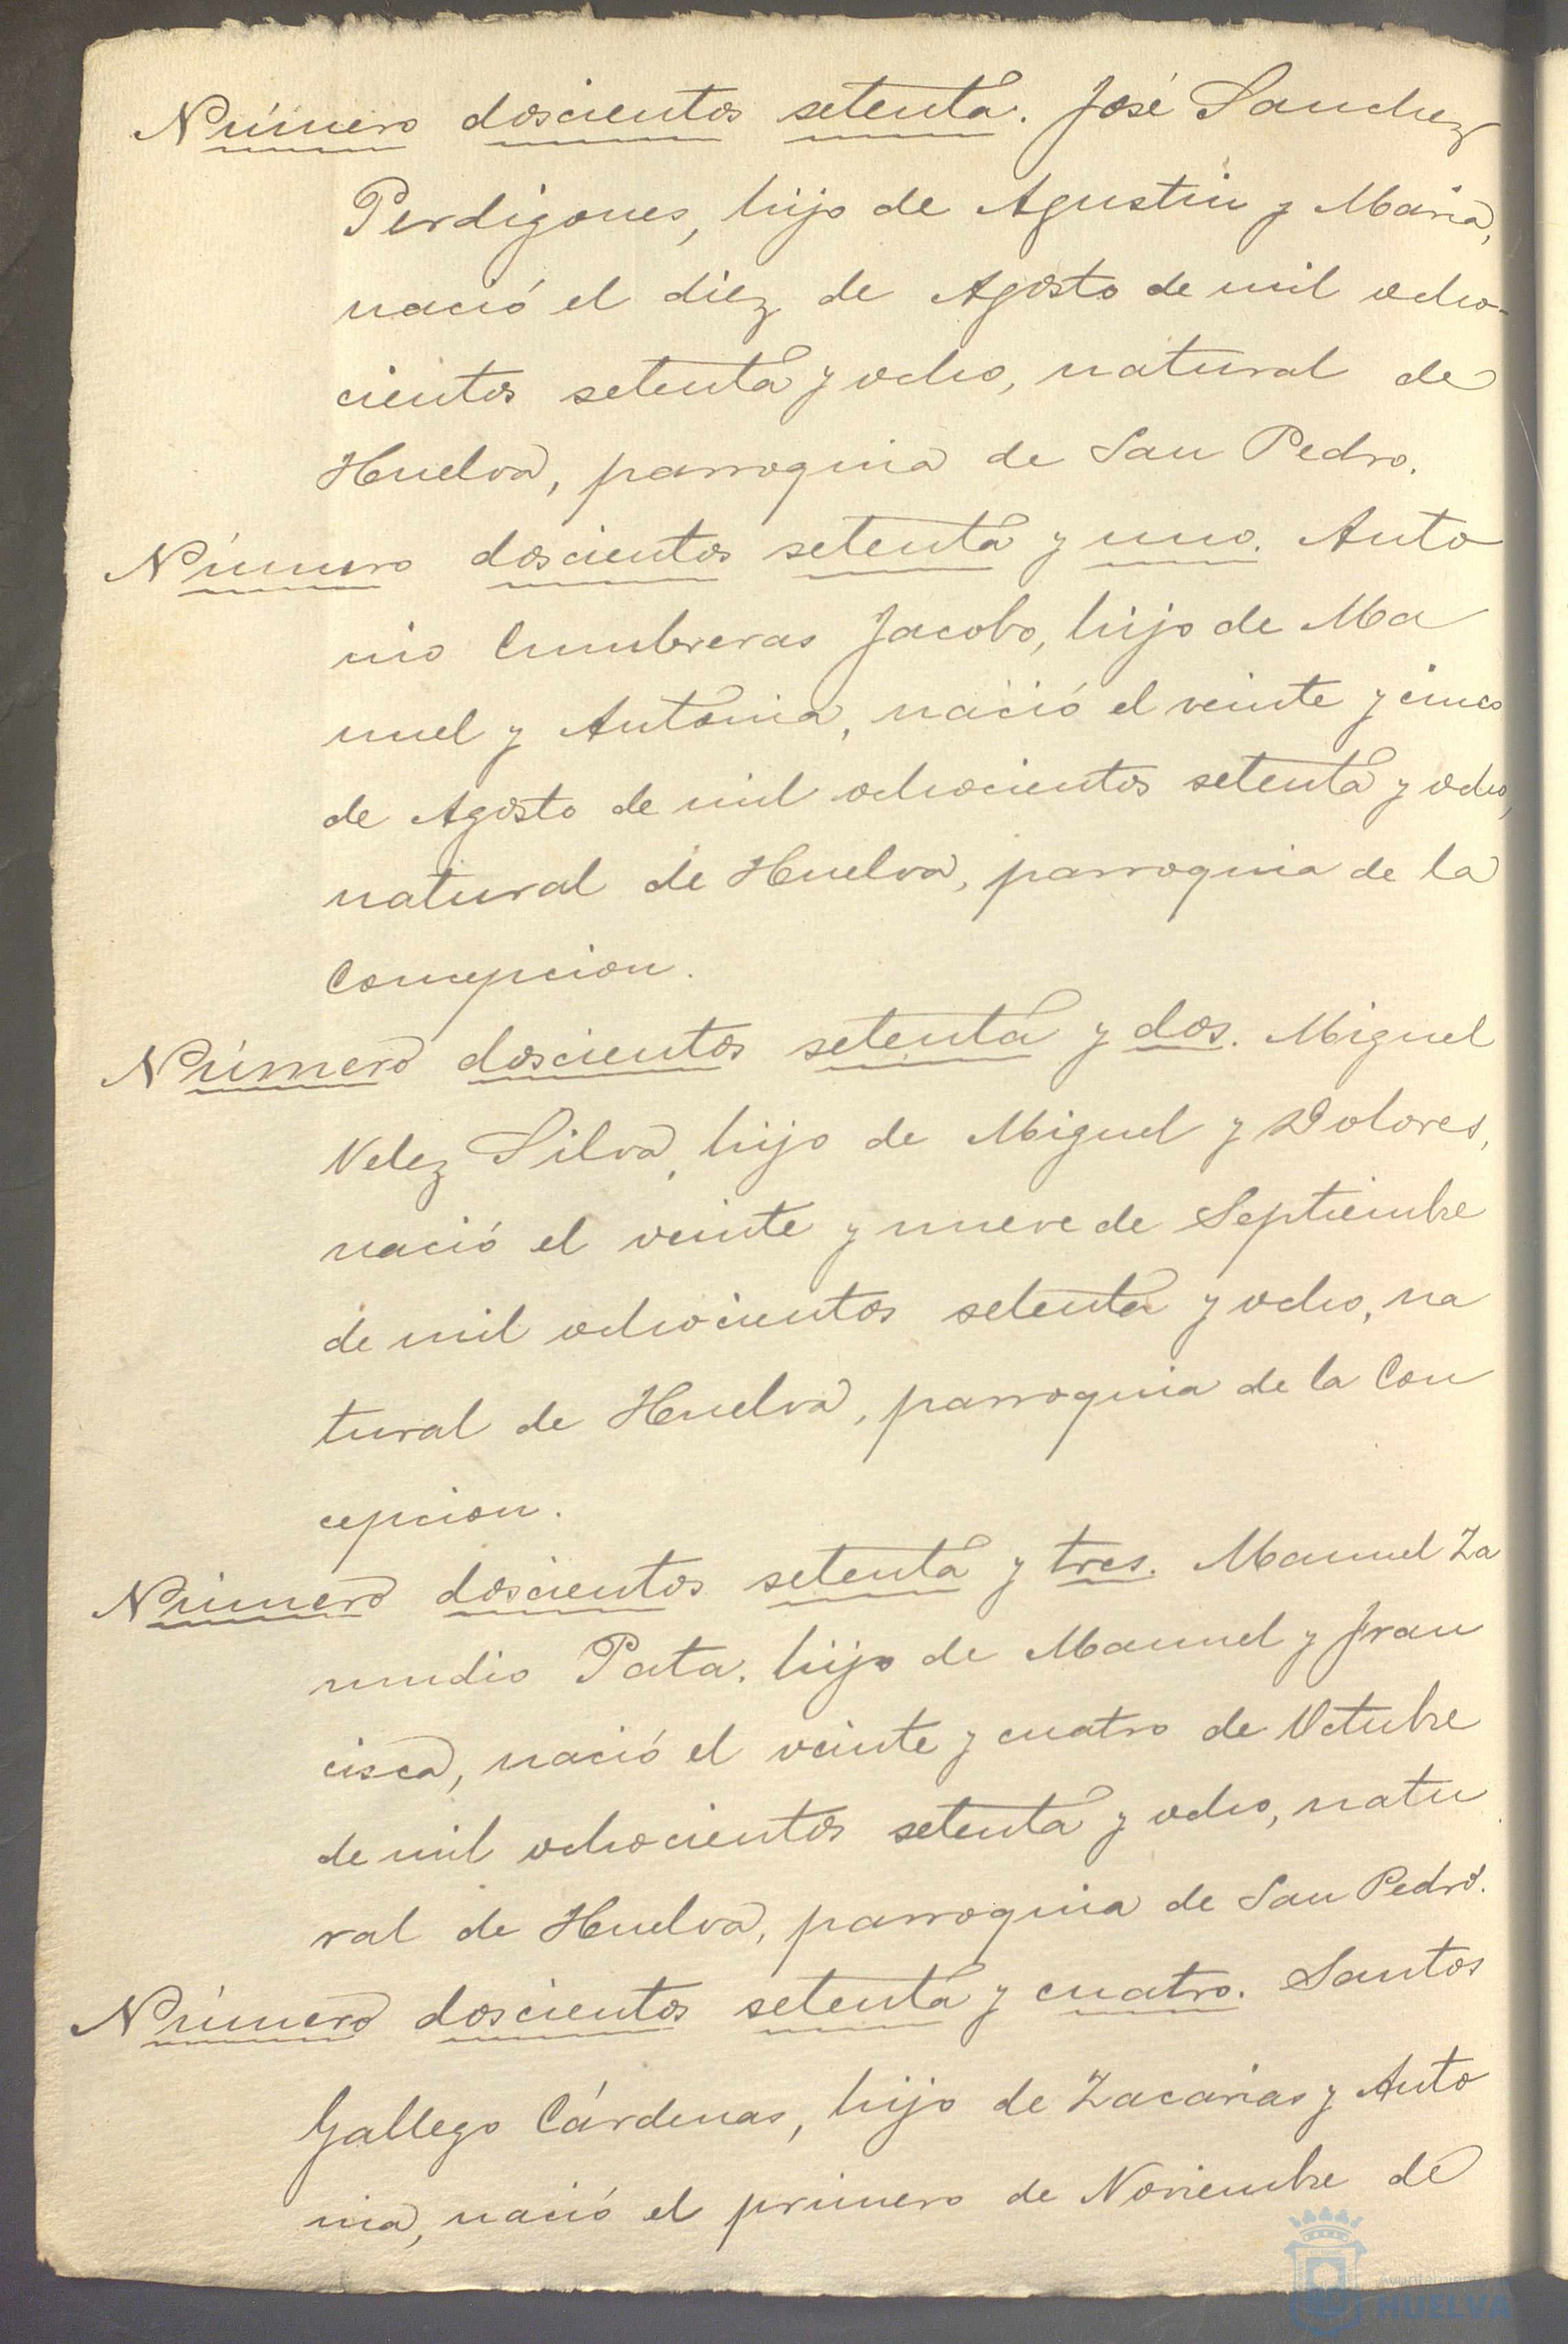 Número doscientos setenta. José Sanchez
Perdigones, hijo de Agustin y Maria,
nació el diez de Agosto de mil ocho-
cientos setenta y ocho, natural de
Huelva, parroquia de San Pedro.
Número doscientos setenta y uno. Anto
nio Cumbreras Jacobo, hijo de Ma
nuel y Antonia, nació el veinte y cinco
de Agosto de mil ochocientos setenta y ocho,
natural de Huelva, parroquia de la
Concepcion.
Número doscientos setenta y dos. Miguel
Velez Silva, hijo de Miguel y Dolores,
nació el veinte y nueve de Septiembre
de mil ochocientos setenta y ocho, na
tural de Huelva, parroquia de la Con
cepcion.
Número doscientos setenta y tres. Manuel Za
mudio Pata, hijo de Manuel y Fran
cisca, nació el veinte y cuatro de Octubre
de mil ochocientos setenta y ocho, natu
ral de Huelva, parroquia de San Pedro.
Número doscientos setenta y cuatro. Santos
Gallego Cárdenas, hijo de Zacarias y Anto
nia, nació el primero de Noviembre de
Ayuntamiento
HUELVA